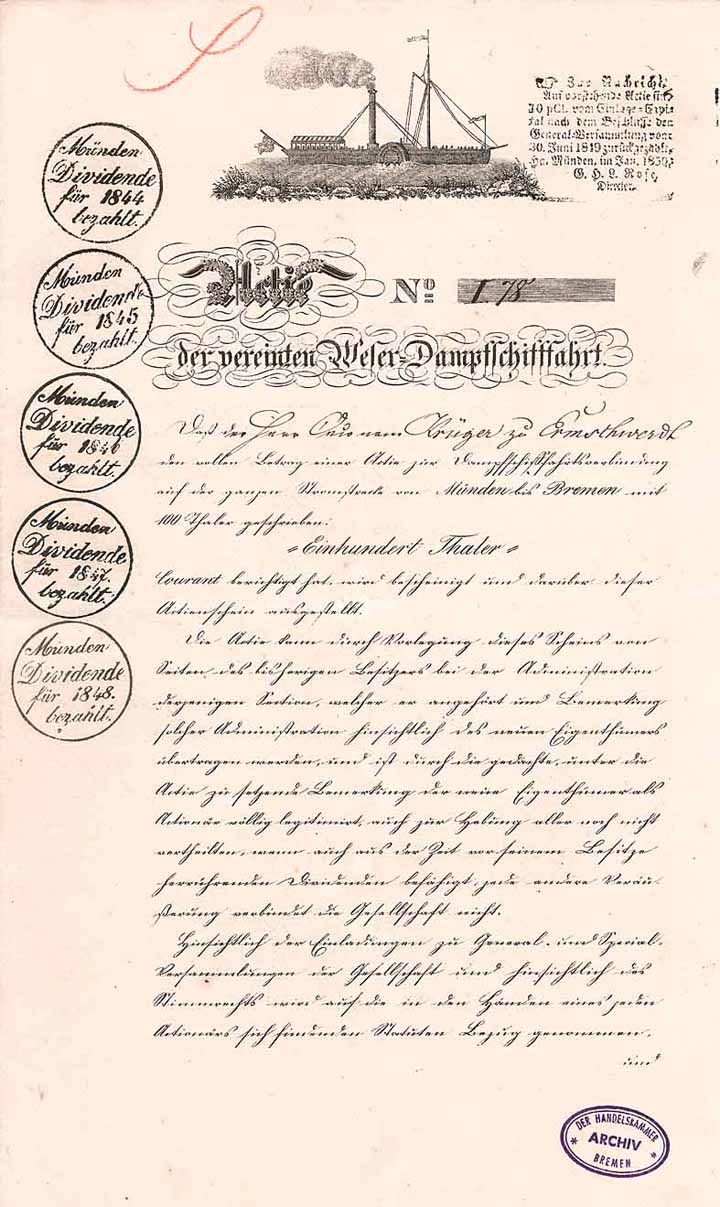 Zur Nachricht.
Auf vorstehende Actie sind
30 pCt. vom Einlage-Capi-
tal nach dem Beschlusse der
General-Versammlung vom
30. Juni 1849 zurückgezahlt.
Hn. Münden, im Jan. 1850.
G. H. L. Rose,
Director.
Münden
Dividende
für 1844
bezahlt.
Münden
Dividende
für 1845
bezahlt.
Münden
Dividende
für 1846
bezahlt.
Münden
Dividende
für 1847.
bezahlt.
Münden
Dividende
für 1848.
bezahlt.
Actie No I 78
der vereinten Weser-Dampfschifffahrt.
Daß der Herr Krüger zu Ermschwerdt
den vollen Betrag einer Actie zur Dampfschifffahrtsverbindung
auf der ganzen Stromstrecke von Münden bis Bremen mit
100 Thaler geschrieben:
"Einhundert Thaler"
Courant berichtigt hat, wird bescheinigt und darüber dieser
Actienschein ausgestellt.
Die Actie kann durch Vorlegung dieses Scheins von
Seiten des bisherigen Besitzers bei der Administration
derjenigen Section, welcher er angehört und Bemerkung
solcher Administration hinsichtlich des neuen Eigenthümers
übertragen werden, und ist durch die gedachte, unter die
Actie zu setzende Bemerkung der neue Eigenthümer als
Actionär völlig legitimirt, auch zur Hebung aller noch nicht
vertheilten, wenn auch aus der Zeit vor seinem Besitze
herrührenden Dividenden befähigt, jede andere Veräu-
ßerung verbindet die Gesellschaft nicht.
Hinsichtlich der Einladungen zu General- und Special-
Versammlungen der Gesellschaft und hinsichtlich des
Stimmrechts wird auf die in den Händen eines jeden
Actionärs sich findenden Statuten Bezug genommen,
und
DER HANDELSKAMMER
ARCHIV
BREMEN